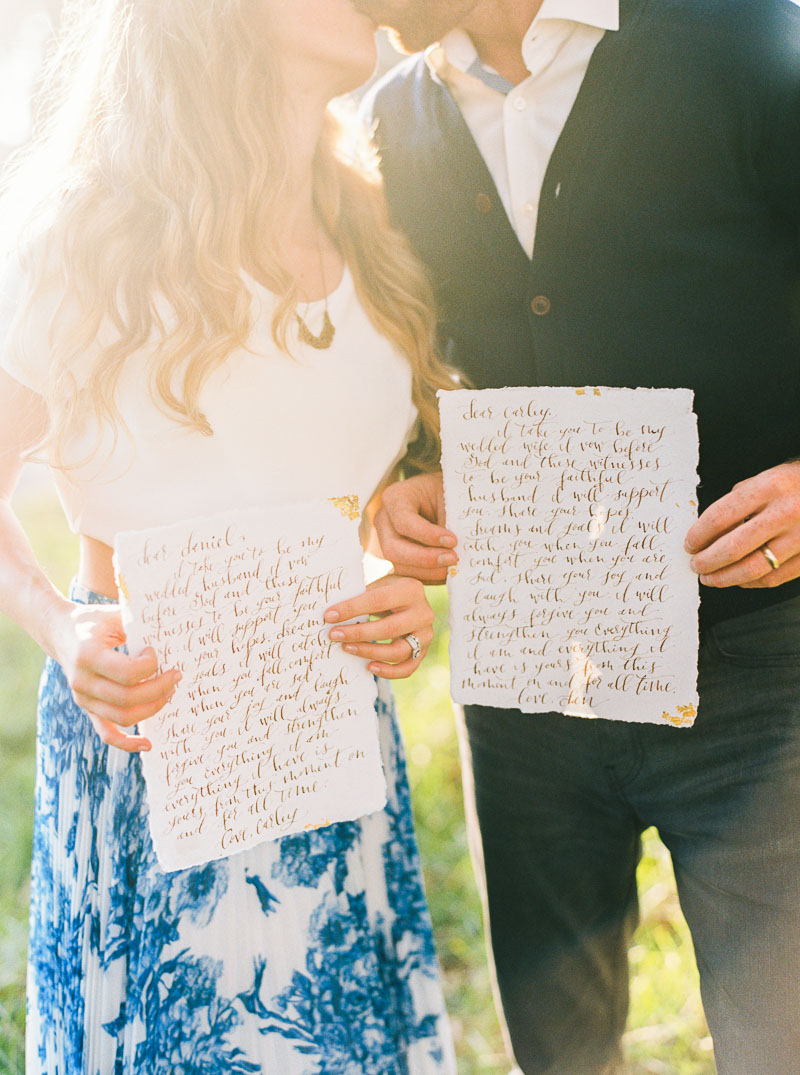 dear daniel,
I take you to be my
wedded husband. I vow
before God and these
witnesses to be your faithful
wife. I will support you
your hopes, dreams
goals. I will catch
when you fall, comfort
you when you are sad.
share your joy and laugh
with you. I will always
forgive you and strengthen
you. Everything I am
everything I have is
yours from this moment on
and for all time.
Love, Carley
dear Carley,
I take you to be my
wedded wife. I vow before
God and these witnesses
to be your faithful
husband. I will support
you. Share your hopes,
dreams and goals. I will
catch you when you fall,
comfort you when you are
sad. Share your joy and
laugh with you. I will
always forgive you and
strengthen you. Everything
I am and everything I
have is yours from this
moment on and for all time.
Love,